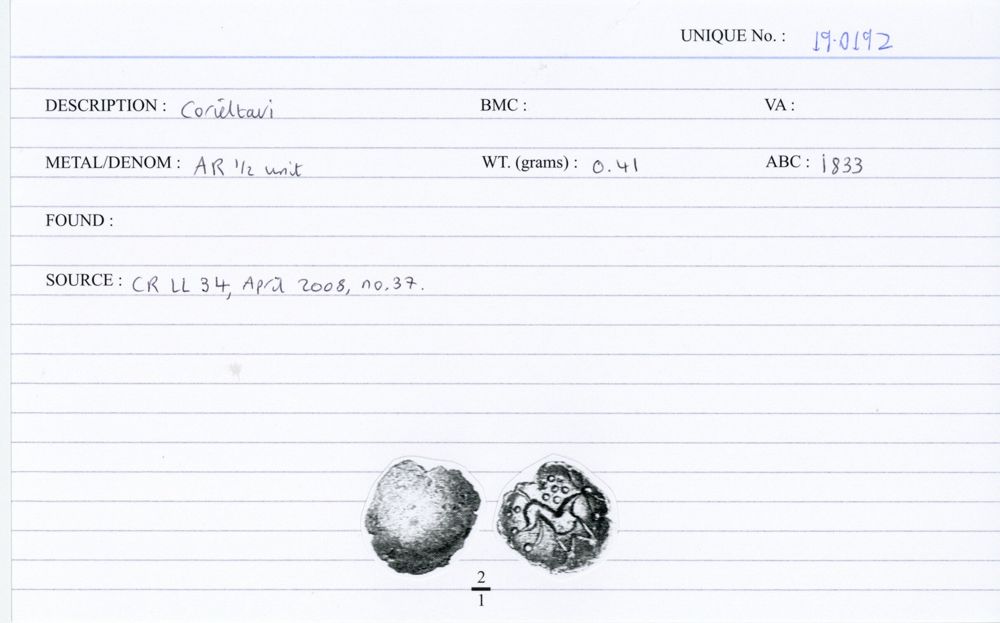 UNIQUE No. : 19.0192
DESCRIPTION : Corieltavi BMC : VA :
METAL/DENOM : AR 1/2 unit WT. (grams) : 0.41 ABC : 1833
FOUND :
SOURCE : CR LL 34, April 2008, no.37.
2
1